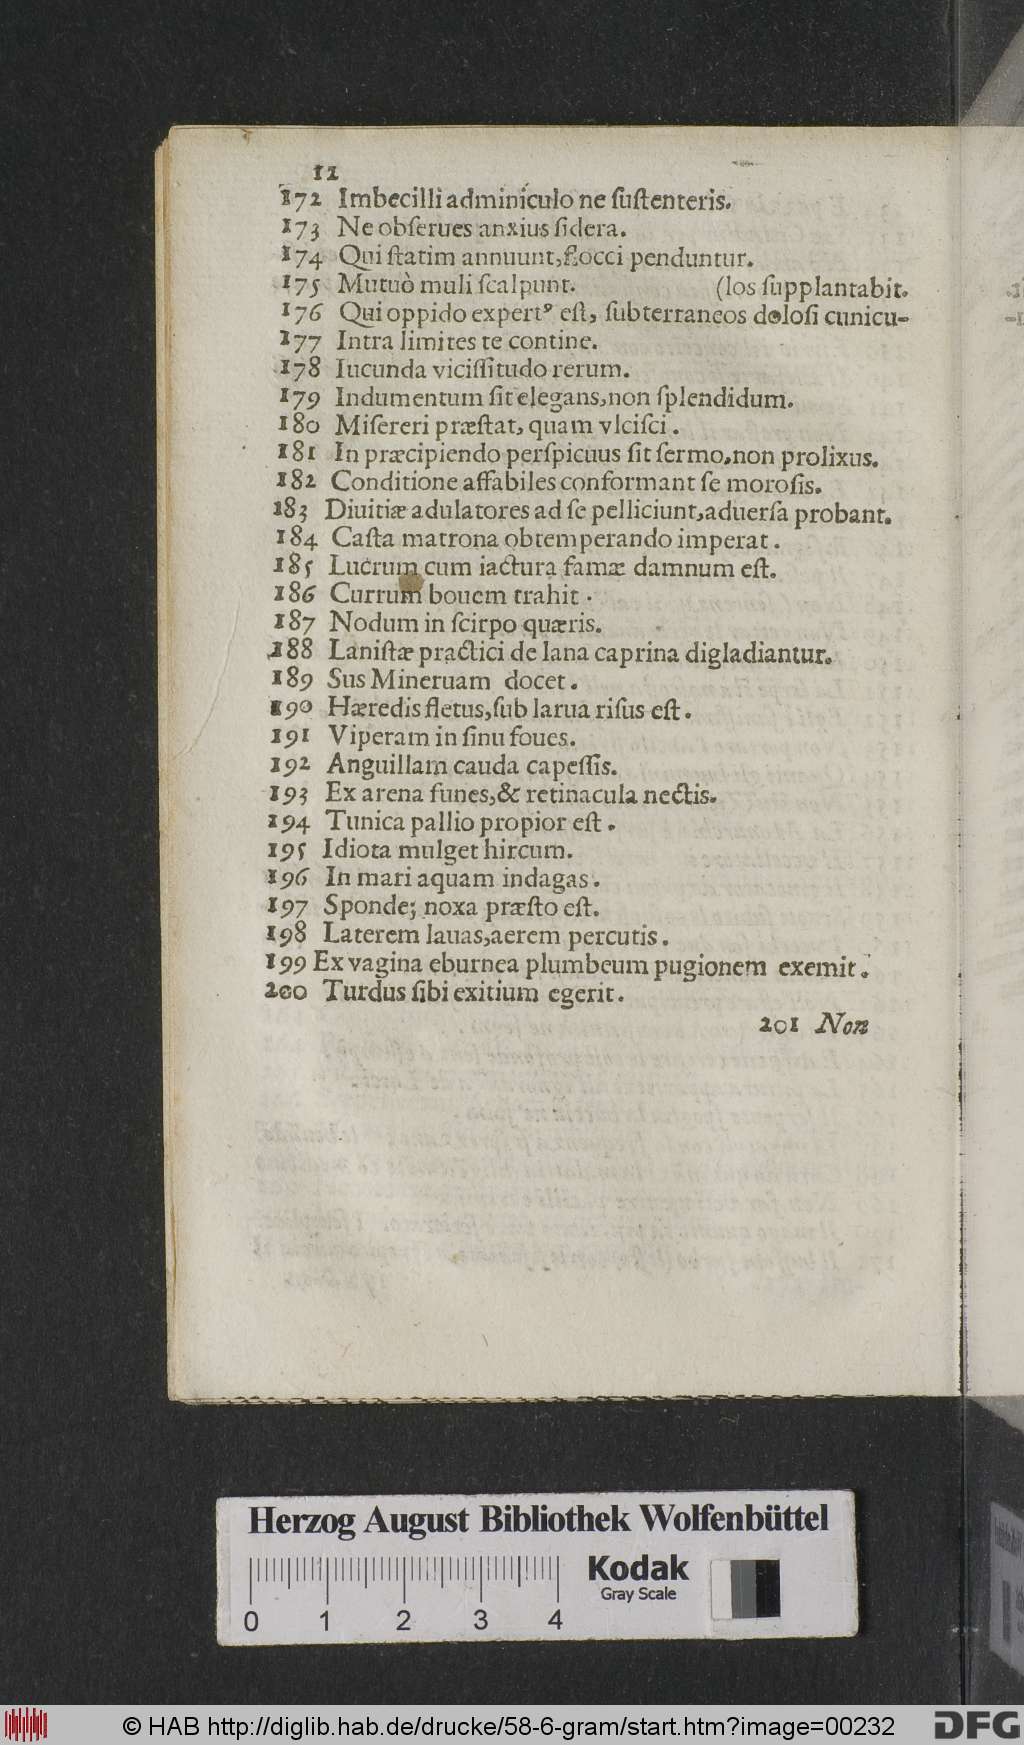 12
172 Imbecilli adminículo ne ſuſtenteris.
173 Ne obſerues anxius ſidera.
174 Qui ſtatim annuunt, flocci penduntur.
175 Mutuò muli ſcalpunt. (los ſupplantabit.
176 Qui oppido expertꝰ eſt, ſubterraneos doloſi cunicu-
177 Intra limites te contine.
178 Iucunda viciſſitudo rerum.
179 Indumentum ſit elegans, non ſplendidum.
180 Miſereri præſtat, quam vlciſci.
181 In præcipiendo perſpicuus ſit ſermo, non prolixus.
182 Conditione affabiles conformant ſe moroſis.
183 Diuitiæ adulatores ad ſe pelliciunt, aduerſa probant.
184 Caſta matrona obtemperando imperat.
185 Lucrum cum iactura famæ damnum eſt.
186 Currum bouem trahit.
187 Nodum in ſcirpo quæris.
188 Laniſtæ practici de lana caprina digladiantur.
189 Sus Mineruam docet.
190 Hæredis fletus, ſub larua riſus eſt.
191 Viperam in ſinu foues.
192 Anguillam cauda capeſſis.
193 Ex arena funes, & retinacula nectis.
194 Tunica pallio propior eſt.
195 Idiota mulget hircum.
196 In mari aquam indagas.
197 Sponde; noxa præſto eſt.
198 Laterem lauas, aerem percutis.
199 Ex vagina eburnea plumbeum pugionem exemit.
200 Turdus ſibi exitium egerit.
201 Non
Herzog August Bibliothek Wolfenbüttel
Kodak
Gray Scale
0 1 2 3 4
© HAB http://diglib.hab.de/drucke/58-6-gram/start.htm?image=00232
DFG